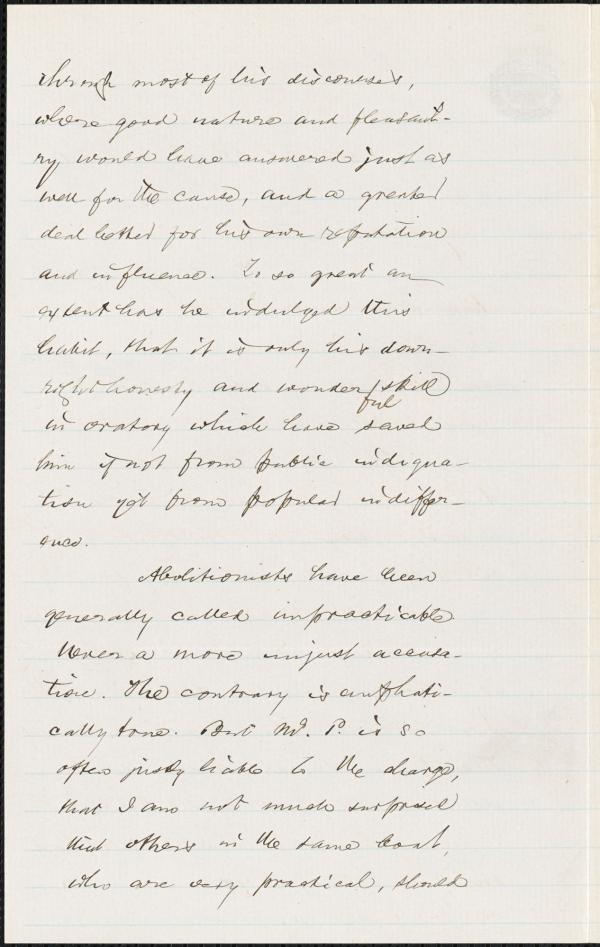 through most of his discourses,
where good nature and pleasant-
ry would have answered just as
well for the cause, and a greater
deal better for his own reputation
and influence. To so great an
extent has he indulged this
habit, that it is only his down-
right honesty and wonder/skill
ful
in oratory which have saved
him if not from public indigna-
tion yet from popular indiffer-
ence.
Abolitionists have been
generally called impracticable
Never a more unjust accusa-
tion. The contrary is emphati-
cally true. But Mr. P. is so
often justly liable to the charge,
that I am not much surprised
that others in the same boat,
who are very practical, should